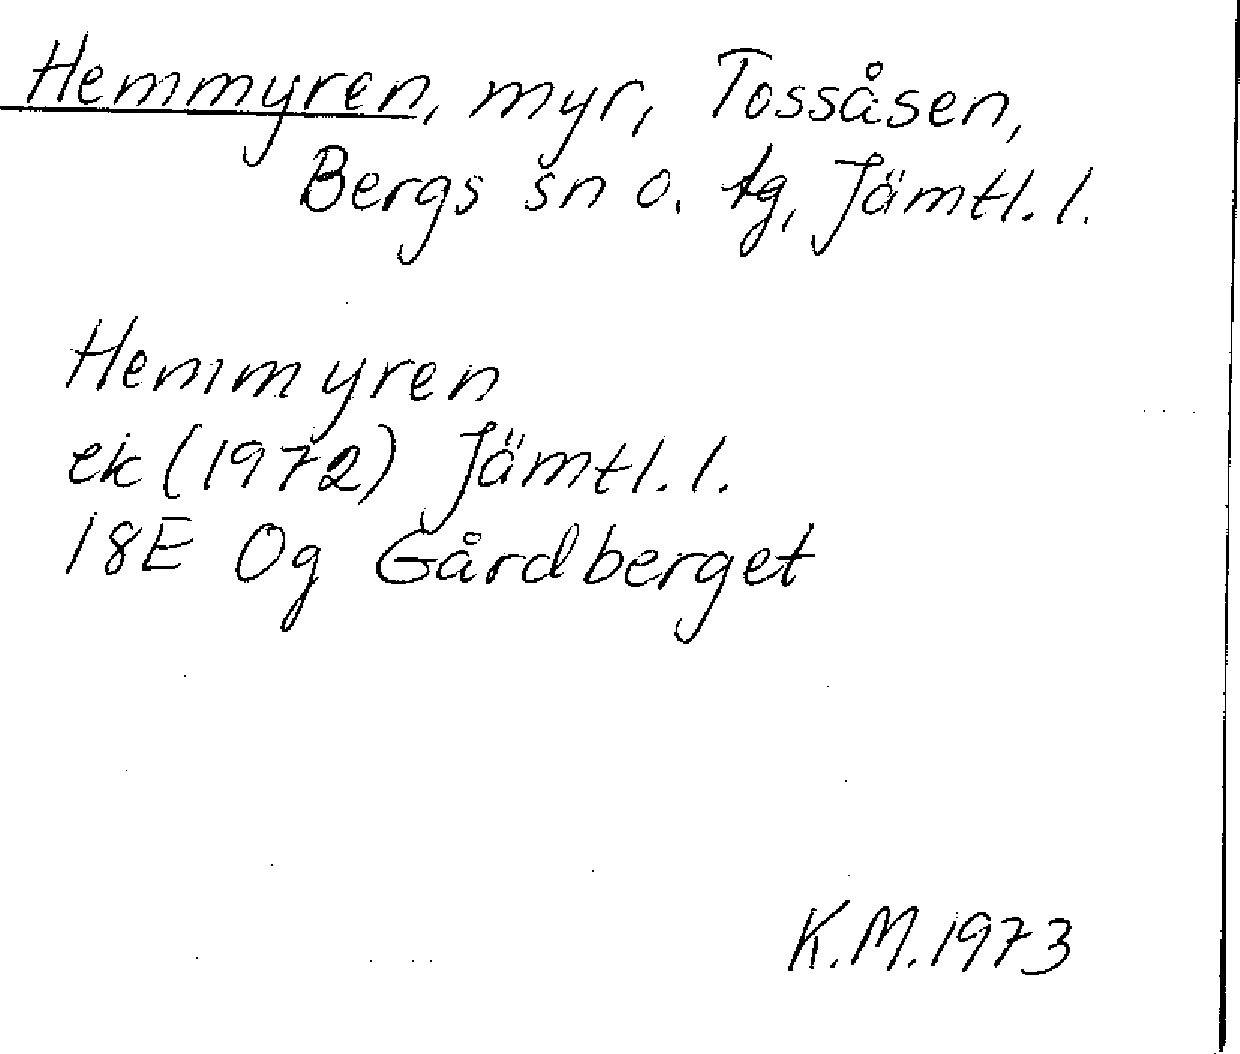 Hemmyren, myr, Tossåsen,
Bergs sn o. tg, Jämtl. l.
Hemmyren
ek (1972) Jämtl. l.
18E Og Gårdberget
K.M. 1973